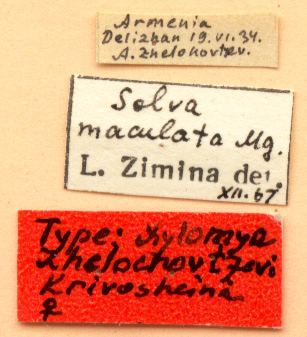 Armenia
Delizhan 19.VI.34.
A. Zhelohovtzv.
Solva
maculata Mg.
L. Zimina det
XII.67
Type: Xylomya
zhelochovtzevi
Krivosheina
♀